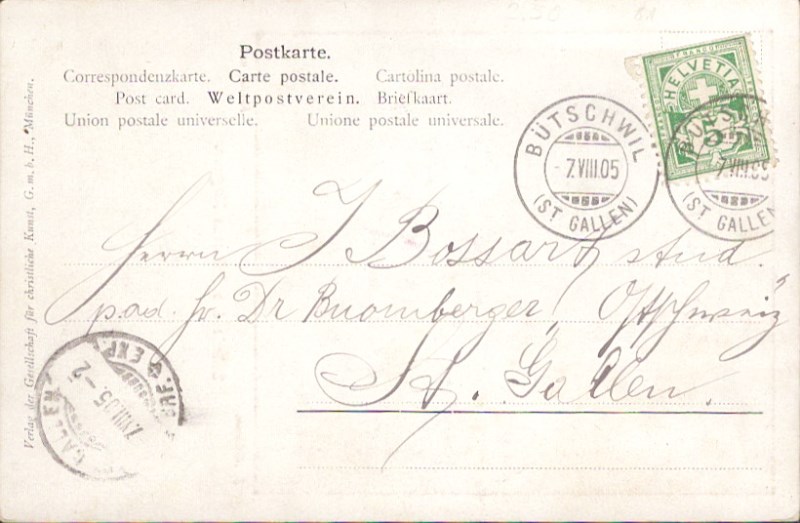 Postkarte.
Correspondenzkarte. Carte postale. Cartolina postale.
Post card. Weltpostverein. Briefkaart.
Union postale universelle. Unione postale universale.
HELVETIA
5
BÜTSCHWIL
- 7.VIII.05
(ST GALLEN)
BÜTSCHWIL
7.VIII.05
(ST GALLEN)
Herrn J Bossart stud.
pad. Dr Buomberger, Ostschweiz
St. Gallen.
GALLEN
7.VIII.05.-2
BRF. EXP.
Verlag der Gesellschaft für christliche Kunst, G. m. b. H., München.